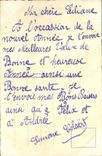 Ma chère Liliane
A l'occasion de la
nouvel Année je t'envoie
mes meilleurs Vœux de
Bonne et heureuse
Année ainsi que
Bonne santé
t'envoie mes Bons Baisers
ainsi qu'à
et à Andrée
Simone